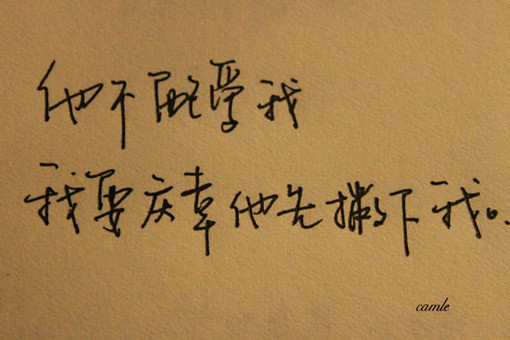 他不爱我
我要庆幸他先撇下我。
camle